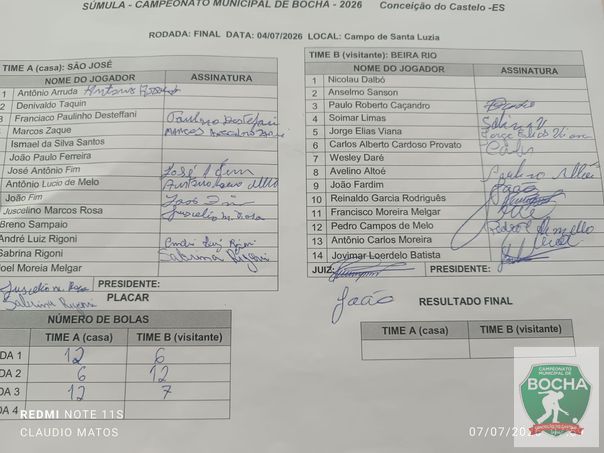 SÚMULA - CAMPEONATO MUNICIPAL DE BOCHA - 2026 Conceição do Castelo -ES
RODADA: FINAL DATA: 04/07/2026 LOCAL: Campo de Santa Luzia
TIME A (casa): SÃO JOSÉ
NOME DO JOGADOR ASSINATURA
1 Antônio Arruda
2 Denivaldo Taquin
3 Franciaco Paulinho Desteffani Paulino Desteffani
Marcos Zaque
Ismael da Silva Santos
João Paulo Ferreira
José Antônio Fim José A Fim
Antônio Lucio de Melo Antonio Lucio Mello
João Fim João Fim
Juscelino Marcos Rosa Juscelio M. Rosa
Breno Sampaio
André Luiz Rigoni André Luiz Rigoni
Sabrina Rigoni Sabrina Rigoni
Joel Moreia Melgar
PRESIDENTE:
Juscelio M. Rosa
Sabrina Rigoni
TIME B (visitante): BEIRA RIO
NOME DO JOGADOR ASSINATURA
1 Nicolau Dalbó
2 Anselmo Sanson
3 Paulo Roberto Caçandro
4 Soimar Limas
5 Jorge Elias Viana Jorge Elias Viana
6 Carlos Alberto Cardoso Provato
7 Wesley Daré
8 Avelino Altoé Avelino Altoé
9 João Fardim João
10 Reinaldo Garcia Rodriguês
11 Francisco Moreira Melgar
12 Pedro Campos de Melo
13 Antônio Carlos Moreira
14 Jovimar Loerdelo Batista
JUIZ: PRESIDENTE:
João
PLACAR
NÚMERO DE BOLAS
TIME A (casa) TIME B (visitante)
DA 1 12 6
DA 2 6 12
DA 3 12 7
DA 4
RESULTADO FINAL
TIME A (casa) TIME B (visitante)
REDMI NOTE 11S
CLAUDIO MATOS
07/07/202
CAMPEONATO
MUNICIPAL DE
BOCHA
CONCEIÇÃO DO CASTELO